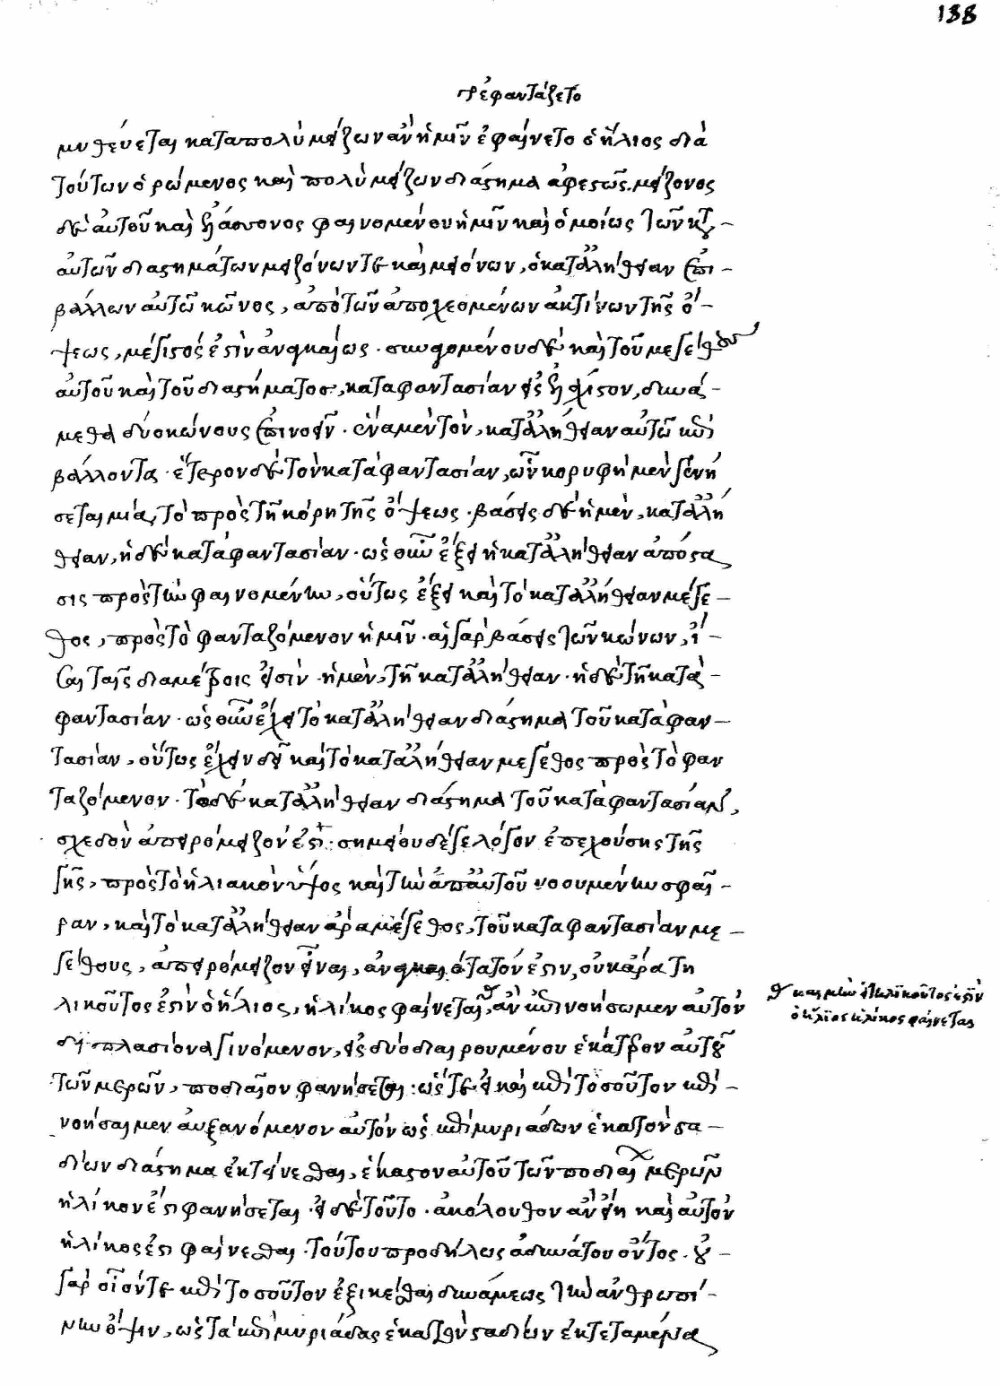 138
ἐφαντάζετο
μυθεύεται κατὰ πολὺ μείζων ἂν ἡμῖν ἐφαίνετο ὁ ἥλιος διὰ
τούτων ὁρώμενος καὶ πολὺ μείζων διάστημα ἀφεστὼς. μείζονος
δὲ αὐτοῦ καὶ ἐλάσσονος φαινομένου ἡμῖν καὶ ὁμοίως τῶν κατ
αὐτῶν διαστημάτων μειζόνων τε καὶ μειόνων, ὁ κατ' ἀλήθειαν ἐπι
βάλλων αὐτῷ κῶνος, ἀπὸ τῶν ἀποχεομένων ἀκτίνων τῆς ὄ
ψεως, μέγιστός ἐστιν ἀναγκαίως. συναγομένου δὲ καὶ τοῦ μεγέθους
αὐτοῦ καὶ τοῦ διαστήματος, κατὰ φαντασίαν εἰς ἐλάχιστον, δυνά
μεθα δύο κώνους ἐπινοεῖν. ἕνα μὲν τὸν, κατ' ἀλήθειαν αὐτῷ ἐπι
βάλλοντα. ἕτερον δὲ τὸν κατὰ φαντασίαν, ὧν κορυφὴ μὲν γενή
σεται μία, τὸ πρὸς τῇ κόρῃ τῆς ὄψεως. βάσεις δὲ ἡ μὲν, κατ' ἀλή
θειαν, ἡ δὲ κατὰ φαντασίαν. ὡς οὖν ἕξει ἡ κατ' ἀλήθειαν ἀπόστα
σις πρὸς τὴν φαινομένην, οὕτως ἕξει καὶ τὸ κατ' ἀλήθειαν μέγε
θος, πρὸς τὸ φανταζόμενον ἡμῖν. αἱ γὰρ βάσεις τῶν κώνων, ἴ
σαι ταῖς διαμέτροις εἰσίν. ἡ μὲν, τῇ κατ' ἀλήθειαν. ἡ δὲ τῇ κατὰ
φαντασίαν. ὡς οὖν ἔχει τὸ κατ' ἀλήθειαν διάστημα τοῦ κατὰ φαν
τασίαν, οὕτως ἔχειν δεῖ καὶ τὸ κατ' ἀλήθειαν μέγεθος πρὸς τὸ φαν
ταζόμενον. τὸ δὲ κατ' ἀλήθειαν διάστημα τοῦ κατὰ φαντασίαν,
σχεδὸν ἀπειρομεῖζόν ἐστι. σημείου δέ γε λόγον ἐπεχούσης τῆς
γῆς, πρὸς τὸ ἡλιακὸν ὕψος καὶ τὴν ἀπ' αὐτοῦ νοουμένην σφαῖ
ραν, καὶ τὸ κατ' ἀλήθειαν ἄρα μέγεθος, τοῦ κατὰ φαντασίαν με
γέθους, ἀπειρομεῖζον εἶναι, ἀναγκαιότατόν ἐστιν, οὐκ ἄρα τη
λικοῦτός ἐστιν ὁ ἥλιος, ἡλίκος φαίνεται, ἂν ἐπινοήσωμεν αὐτὸν
καὶ μὴν εἰ τηλικοῦτος ἐστὶν
ὁ ἥλιος ἡλίκος φαίνεται
διπλασίονα γινόμενον, εἰς δύο διαιρουμένου ἑκάτερον αὐτοῦ
τῶν μερῶν, ποδιαῖον φανήσεται: ὥστε εἰ καὶ ἐπὶ τοσοῦτον ἐπι
νοήσαιμεν αὐξανόμενον αὐτὸν ὡς ἐπὶ μυριάδων ἑκατὸν στα
δίων διάστημα ἐκτείνεσθαι, ἕκαστον αὐτοῦ τῶν ποδιαίων μερῶν
ἡλίκον ἐστι φανήσεται. εἰ δὲ τοῦτο. ἀκόλουθον ἂν εἴη καὶ αὐτὸν
ἡλίκος ἐστι φαίνεσθαι. τούτου προδήλως ἀδυνάτου ὄντος. οὐ
γὰρ οἷόν τε ἐπὶ τοσοῦτον ἐξικέσθαι δυνάμεως τὴν ἀνθρωπί
νην ὄψιν, ὡς τὰ ἐπὶ μυριάδας ἑκατὸν σταδίων ἐκτεταμένα